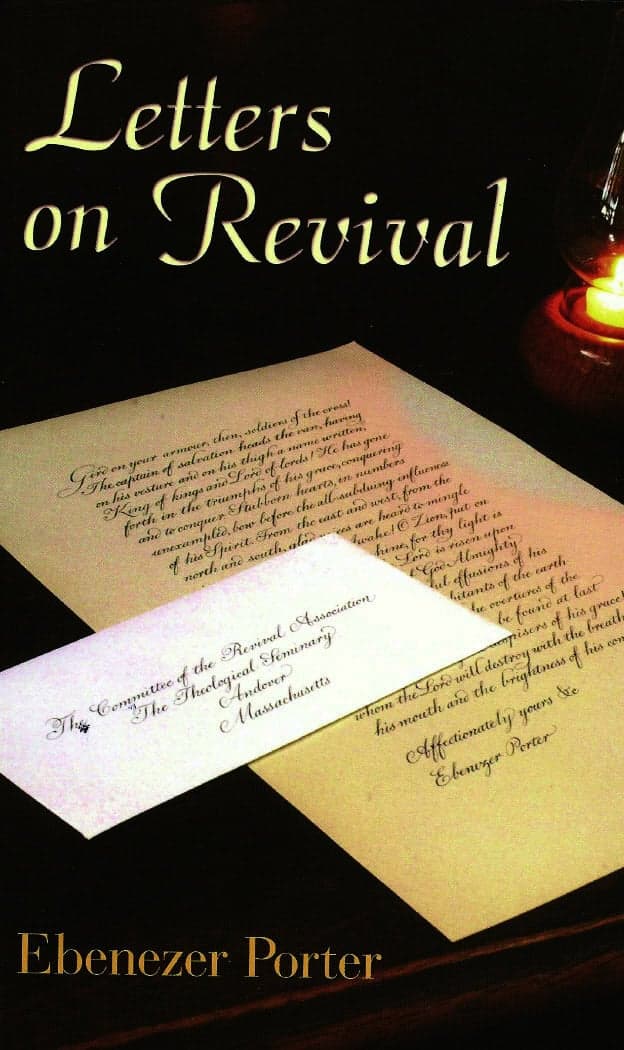 Letters
on Revival
Gird on your armour, then, soldiers of the cross!
The captain of salvation heads the van, having
on his vesture and on his thigh a name written,
King of kings and Lord of lords! He has gone
forth in the triumphs of his grace, conquering
and to conquer. Stubborn hearts, in numbers
unexampled, bow before the all-subduing influences
of his Spirit. From the east and west, from the
north and south, are heard to mingle
Awake! O Zion, put on
shine, for thy light is
Lord is risen upon
God Almighty
effusions of his
of the earth
the overtures of the
be found at last
despisers of his grace
whom the Lord will destroy with the breath
his mouth and the brightness of his
Affectionately yours &c
Ebenezer Porter
The Committee of the Revival Association
The Theological Seminary
Andover
Massachusetts
Ebenezer Porter